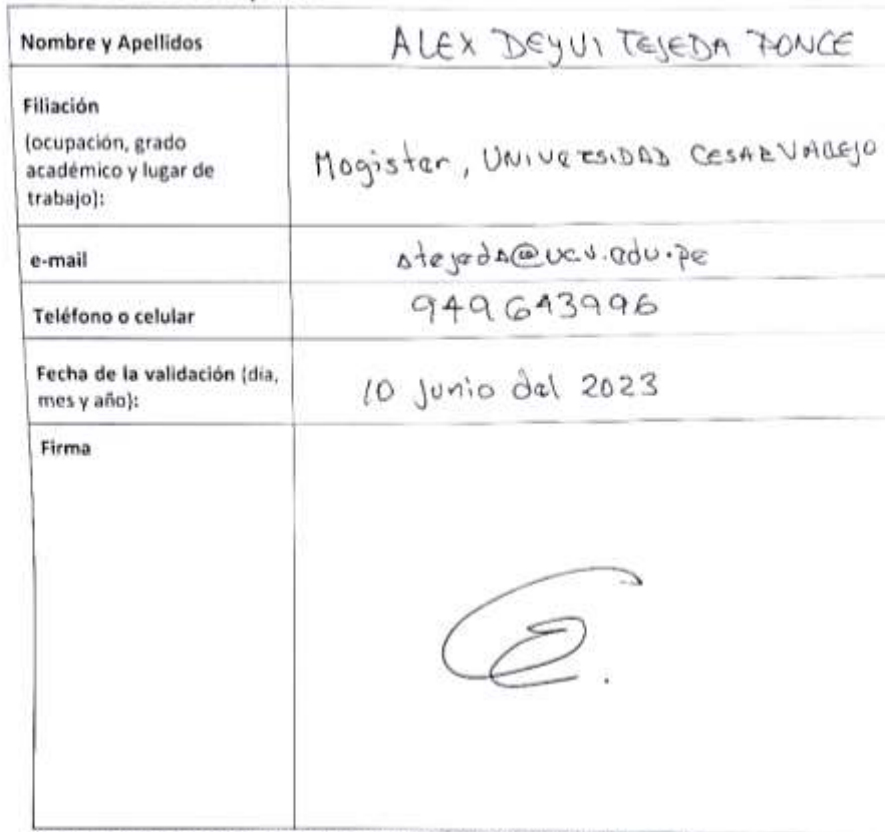 Nombre y Apellidos
ALEX DEYVI TEJEDA PONCE
Filiación
(ocupación, grado
académico y lugar de
trabajo):
Magister, UNIVERSIDAD CESAR VALLEJO
e-mail
atejeda@ucv.edu.pe
Teléfono o celular
949643996
Fecha de la validación (día,
mes y año):
10 Junio del 2023
Firma